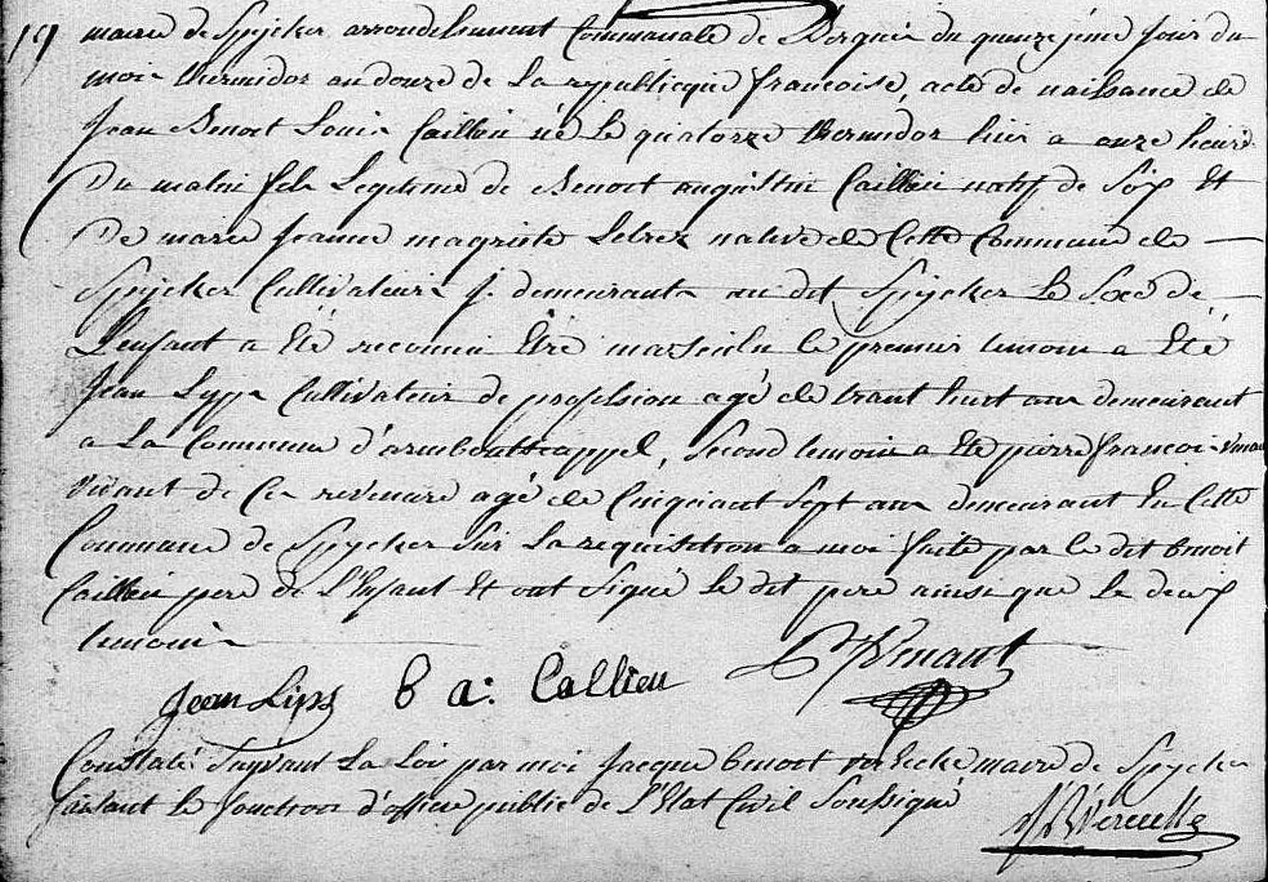 19 mairie de Spycker arrondissement Communale de Bergues du quinzejéme jour du
mois thermidor an douze de La republicque francoise, acte de naissance de
Jean Benoet Louis Caillieu né Le quatorze thermidor hier a onze heures
Du matin fils Legitime de Benoet augustin Caillieu natif de Et
De marie Jeanne magrite native de Cette Commune de
Spycker Cultivateurs demeurants au dit Spycker Le Sexe de
L'enfant a Eté reconnu Etre masculin le premier temoin a Eté
Jean Lyps Cultivateur de profession agé de trant huit ans demeurant
a La Commune d'armbouttscappel, Second temoin a Eté pierre francois Venant
vivant de Ces revenue agé de Cinquant Sept ans demeurant En Cette
Commune de Spycker Sur La requisition a moi faite par le dit benoit
Caillieu pere de L'Enfant Et ont Signé Le dit pere ainsi que Le deux
temoins
Jean Lips b a: Callieu P F Venant
Constaté Suyvant La Loi par moi Jacque benoet maire de Spycker
faisant Le fonction d'officie public de L'Etat Civil Soussigné